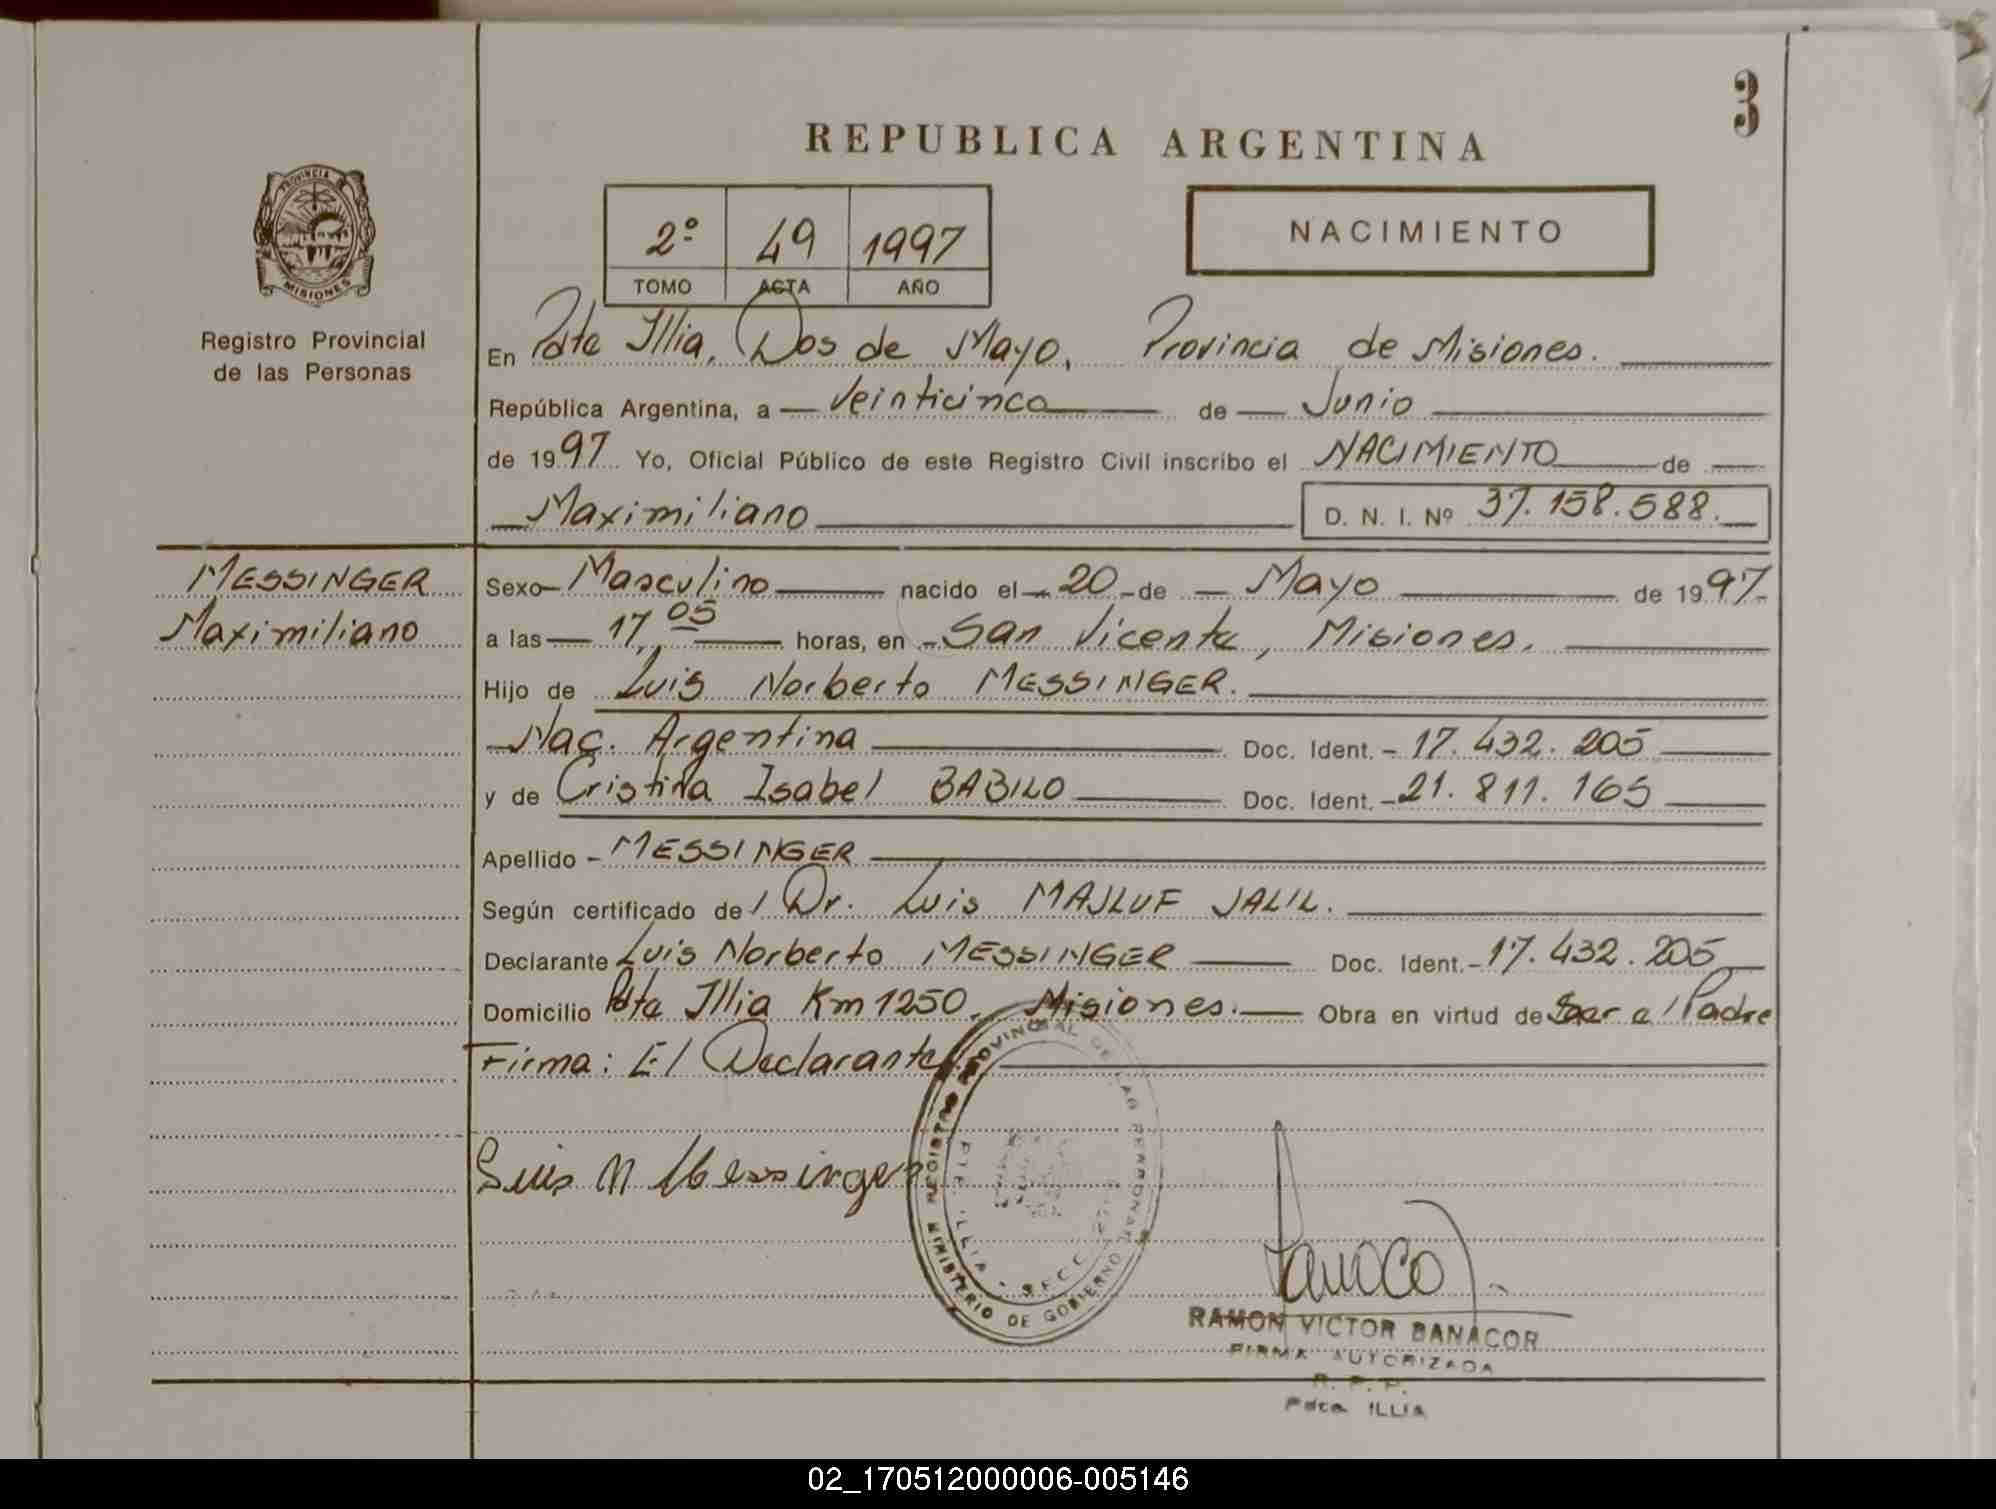 3
REPUBLICA ARGENTINA
PROVINCIA DE
MISIONES
Registro Provincial
de las Personas
2º 49 1997
TOMO ACTA AÑO
NACIMIENTO
En Pdte Illia, Dos de Mayo, Provincia de Misiones.
República Argentina, a veinticinco de Junio
de 1997 Yo, Oficial Público de este Registro Civil inscribo el NACIMIENTO de
Maximiliano D. N. I. Nº 37.158.588.
MESSINGER
Maximiliano
Sexo Masculino nacido el 20 de Mayo de 1997
a las 17,05 horas, en San Vicente, Misiones.
Hijo de Luis Norberto MESSINGER.
Nac. Argentina Doc. Ident. 17.432.205
y de Cristina Isabel BABILO Doc. Ident. 21.811.165
Apellido MESSINGER
Según certificado de l Dr. Luis MAJLUF JALIL.
Declarante Luis Norberto MESSINGER Doc. Ident. 17.432.205
Domicilio Pdte Illia Km 1250. Misiones. Obra en virtud de Ser el Padre
Firma: El Declarante
Luis N Messinger
REGISTRO PROVINCIAL DE LAS PERSONAS
MINISTERIO DE GOBIERNO
PTE. ILLIA - SECC.
RAMON VICTOR BANACOR
FIRMA AUTORIZADA
R. P. P.
Pdte ILLIA
02_170512000006-005146